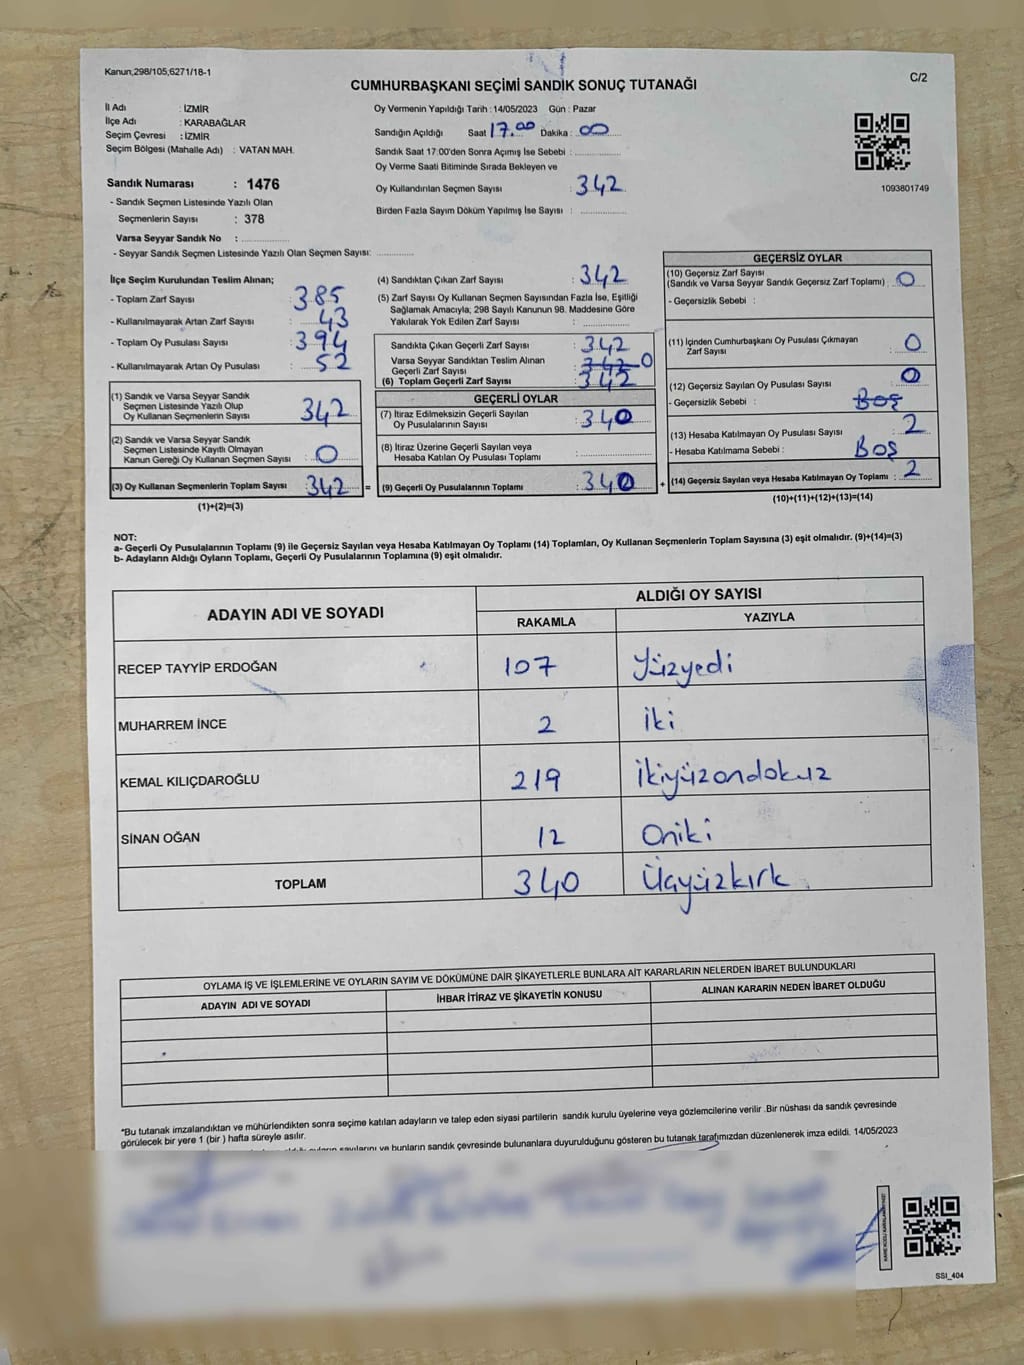 Kanun,298/105,6271/18-1
C/2
CUMHURBAŞKANI SEÇİMİ SANDIK SONUÇ TUTANAĞI
İl Adı : İZMİR
İlçe Adı : KARABAĞLAR
Seçim Çevresi : İZMİR
Seçim Bölgesi (Mahalle Adı) : VATAN MAH.
Sandık Numarası : 1476
- Sandık Seçmen Listesinde Yazılı Olan
Seçmenlerin Sayısı : 378
Varsa Seyyar Sandık No :
- Seyyar Sandık Seçmen Listesinde Yazılı Olan Seçmen Sayısı:
Oy Vermenin Yapıldığı Tarih : 14/05/2023 Gün : Pazar
Sandığın Açıldığı Saat 17.00 Dakika : 00
Sandık Saat 17:00'den Sonra Açımış İse Sebebi :
Oy Verme Saati Bitiminde Sırada Bekleyen ve
Oy Kullandırılan Seçmen Sayısı : 342
Birden Fazla Sayım Döküm Yapılmış İse Sayısı :
1093801749
İlçe Seçim Kurulundan Teslim Alınan;
- Toplam Zarf Sayısı : 385
- Kullanılmayarak Artan Zarf Sayısı : 43
- Toplam Oy Pusulası Sayısı : 394
- Kullanılmayarak Artan Oy Pusulası : 52
(1) Sandık ve Varsa Seyyar Sandık
Seçmen Listesinde Yazılı Olup
Oy Kullanan Seçmenlerin Sayısı : 342
(2) Sandık ve Varsa Seyyar Sandık
Seçmen Listesinde Kayıtlı Olmayan
Kanun Gereği Oy Kullanan Seçmen Sayısı : 0
(3) Oy Kullanan Seçmenlerin Toplam Sayısı : 342 =
(1)+(2)=(3)
(4) Sandıktan Çıkan Zarf Sayısı : 342
(5) Zarf Sayısı Oy Kullanan Seçmen Sayısından Fazla İse, Eşitliği
Sağlamak Amacıyla; 298 Sayılı Kanunun 98. Maddesine Göre
Yakılarak Yok Edilen Zarf Sayısı :
Sandıkta Çıkan Geçerli Zarf Sayısı : 342
Varsa Seyyar Sandıktan Teslim Alınan
Geçerli Zarf Sayısı : 342 0
(6) Toplam Geçerli Zarf Sayısı : 342
GEÇERLİ OYLAR
(7) İtiraz Edilmeksizin Geçerli Sayılan
Oy Pusulalarının Sayısı : 340
(8) İtiraz Üzerine Geçerli Sayılan veya
Hesaba Katılan Oy Pusulası Toplamı :
(9) Geçerli Oy Pusulalarının Toplamı : 340 +
GEÇERSİZ OYLAR
(10) Geçersiz Zarf Sayısı
(Sandık ve Varsa Seyyar Sandık Geçersiz Zarf Toplamı) : 0
- Geçersizlik Sebebi :
(11) İçinden Cumhurbaşkanı Oy Pusulası Çıkmayan
Zarf Sayısı : 0
(12) Geçersiz Sayılan Oy Pusulası Sayısı : 0
- Geçersizlik Sebebi : Boş
(13) Hesaba Katılmayan Oy Pusulası Sayısı : 2
- Hesaba Katılmama Sebebi : Boş
(14) Geçersiz Sayılan veya Hesaba Katılmayan Oy Toplamı : 2
(10)+(11)+(12)+(13)=(14)
NOT:
a- Geçerli Oy Pusulalarının Toplamı (9) ile Geçersiz Sayılan veya Hesaba Katılmayan Oy Toplamı (14) Toplamları, Oy Kullanan Seçmenlerin Toplam Sayısına (3) eşit olmalıdır. (9)+(14)=(3)
b- Adayların Aldığı Oyların Toplamı, Geçerli Oy Pusulalarının Toplamına (9) eşit olmalıdır.
ADAYIN ADI VE SOYADI
ALDIĞI OY SAYISI
RAKAMLA YAZIYLA
RECEP TAYYİP ERDOĞAN 107 Yüzyedi
MUHARREM İNCE 2 İki
KEMAL KILIÇDAROĞLU 219 İkiyüzondokuz
SİNAN OĞAN 12 Oniki
TOPLAM 340 Üçyüzkırk
OYLAMA İŞ VE İŞLEMLERİNE VE OYLARIN SAYIM VE DÖKÜMÜNE DAİR ŞİKAYETLERLE BUNLARA AİT KARARLARIN NELERDEN İBARET BULUNDUKLARI
ADAYIN ADI VE SOYADI İHBAR İTİRAZ VE ŞİKAYETİN KONUSU ALINAN KARARIN NEDEN İBARET OLDUĞU
*Bu tutanak imzalandıktan ve mühürlendikten sonra seçime katılan adayların ve talep eden siyasi partilerin sandık kurulu üyelerine veya gözlemcilerine verilir .Bir nüshası da sandık çevresinde
görülecek bir yere 1 (bir ) hafta süreyle asılır.
sayılarını ve bunların sandık çevresinde bulunanlara duyurulduğunu gösteren bu tutanak tarafımızdan düzenlenerek imza edildi. 14/05/2023
SSI_404